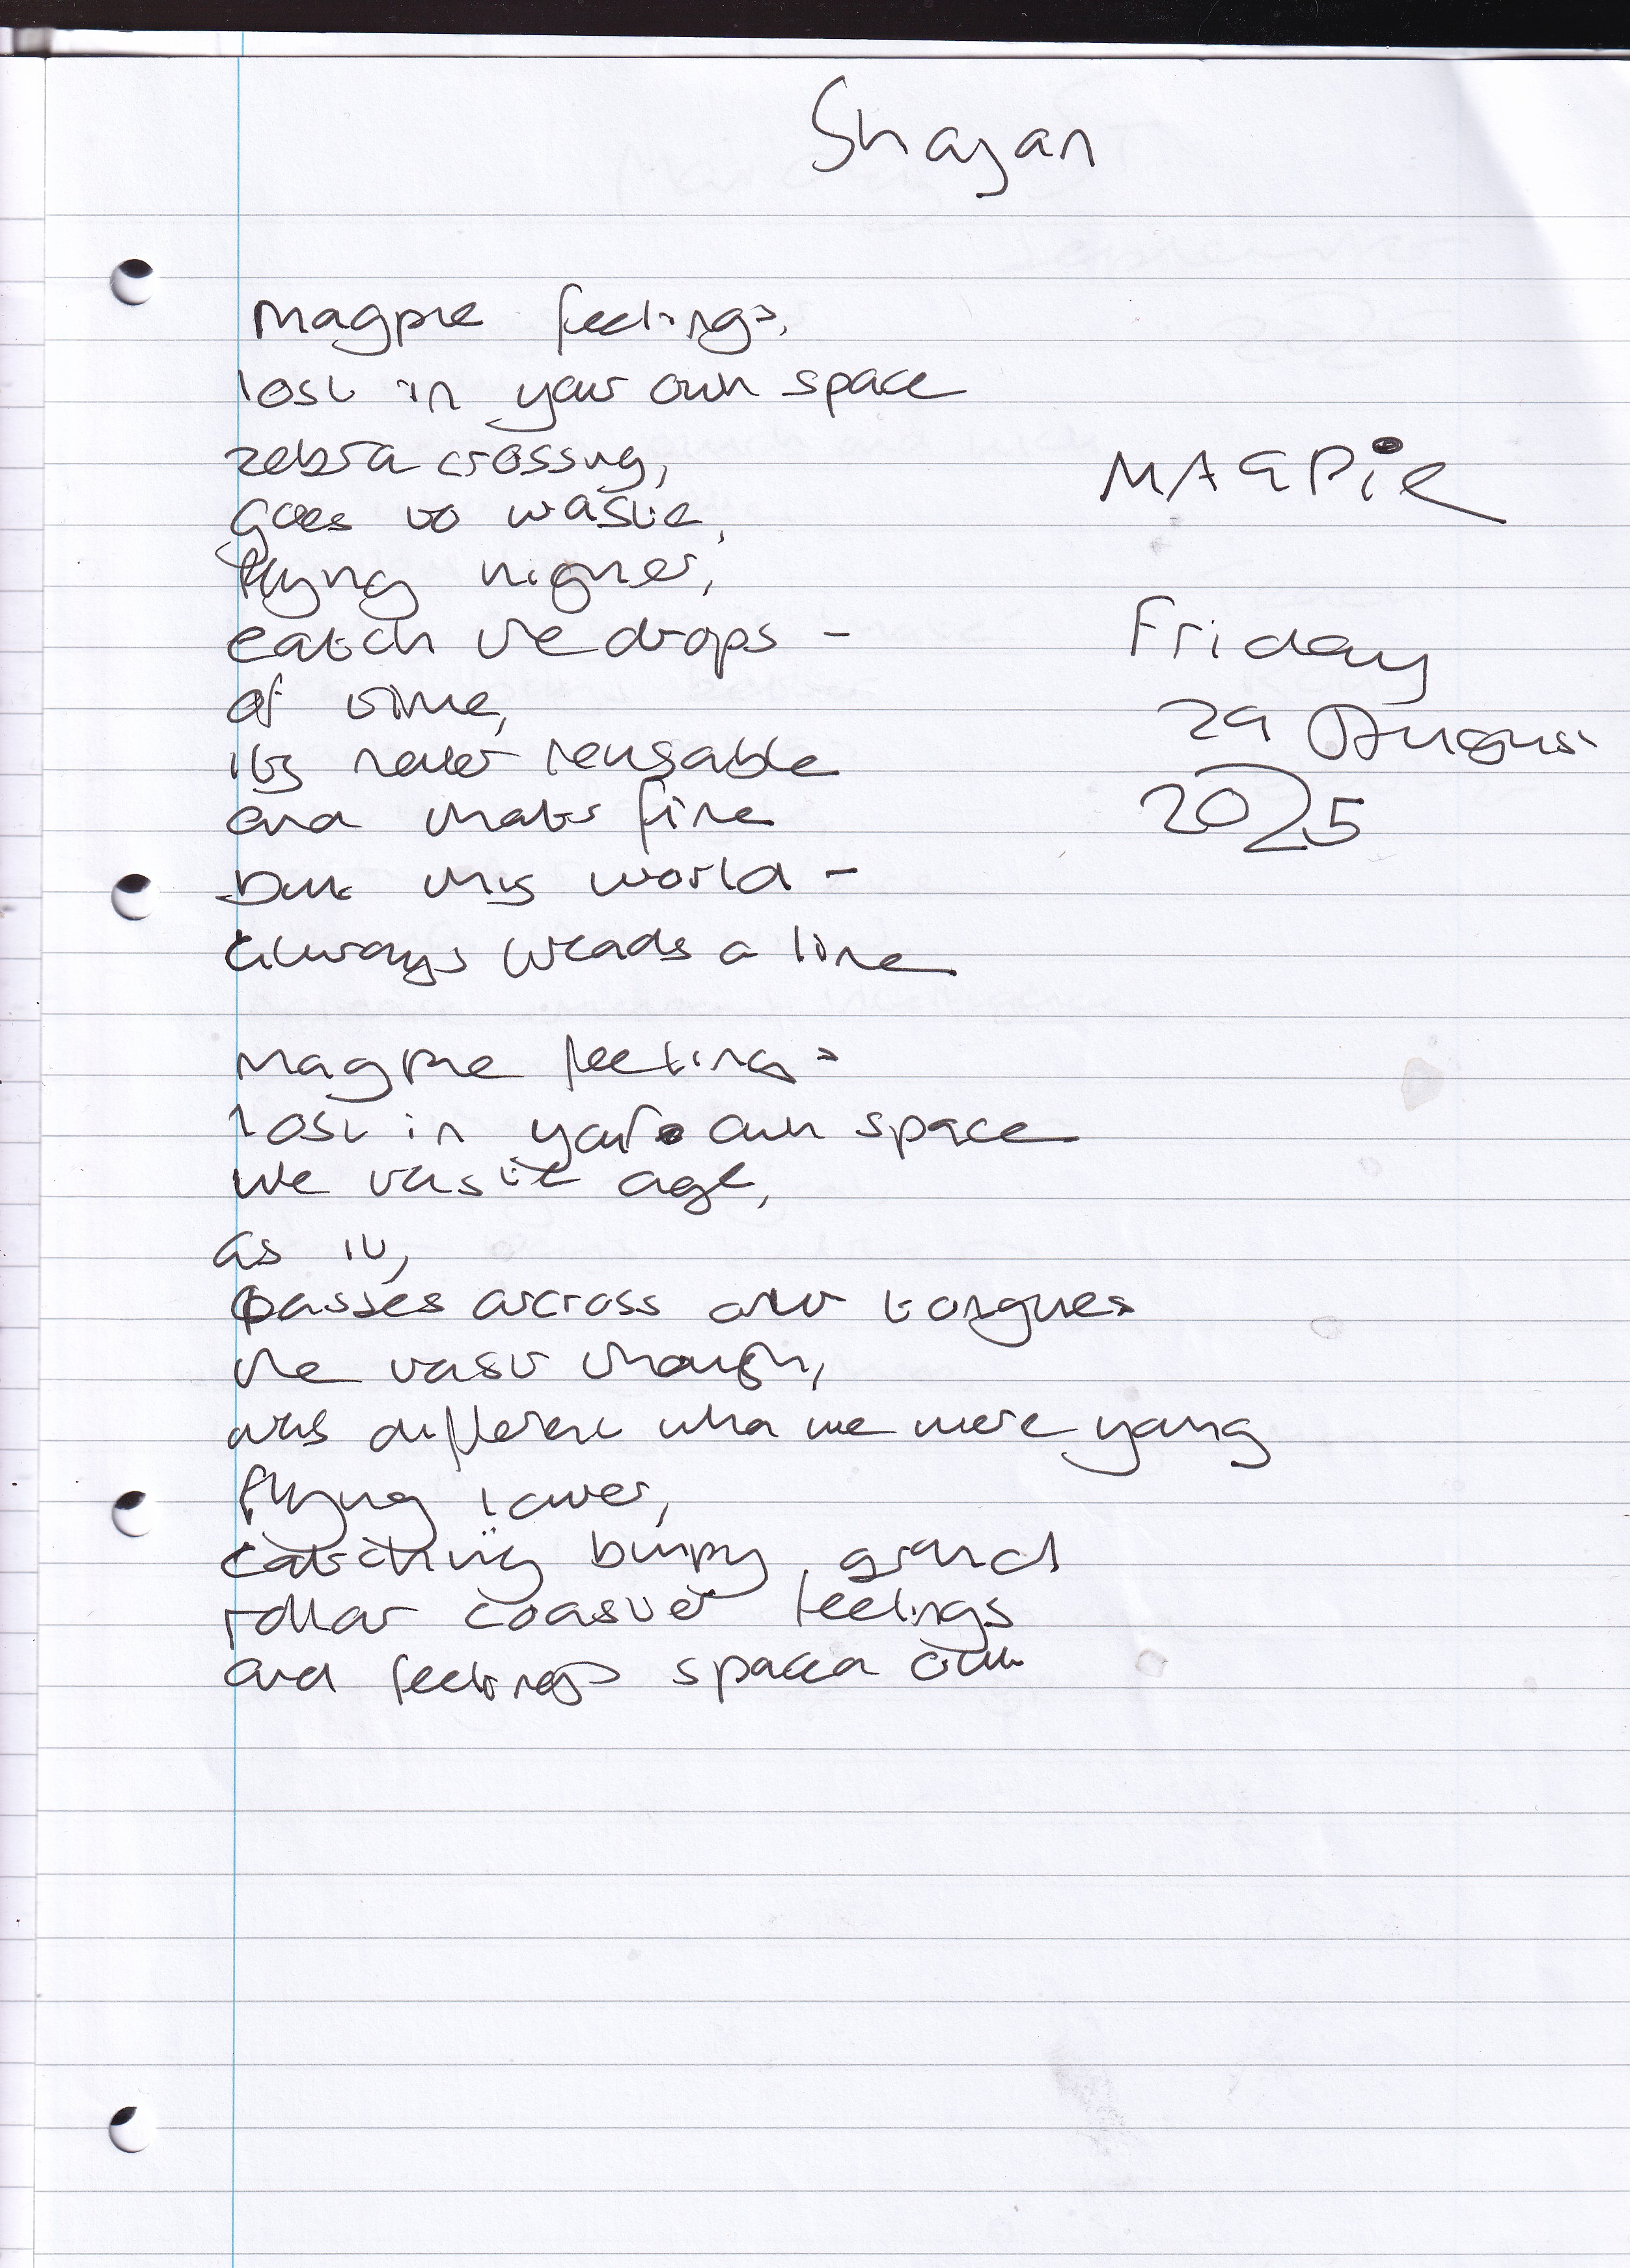 Shayan
Magpie feelings,
lost in your own space
zebra crossing,
goes to waste,
flying higher,
catch the drops -
of time,
its never reusable
and thats fine
but this world -
always treads a line
MAGPiE
Friday
29 August
2025
Magpie feelings
lost in your own space
we taste age,
as it,
passes across our tongues
the taste though,
was different when we were young
flying lower,
catching bumpy ground
rollar coaster feelings
and feelings spaced out